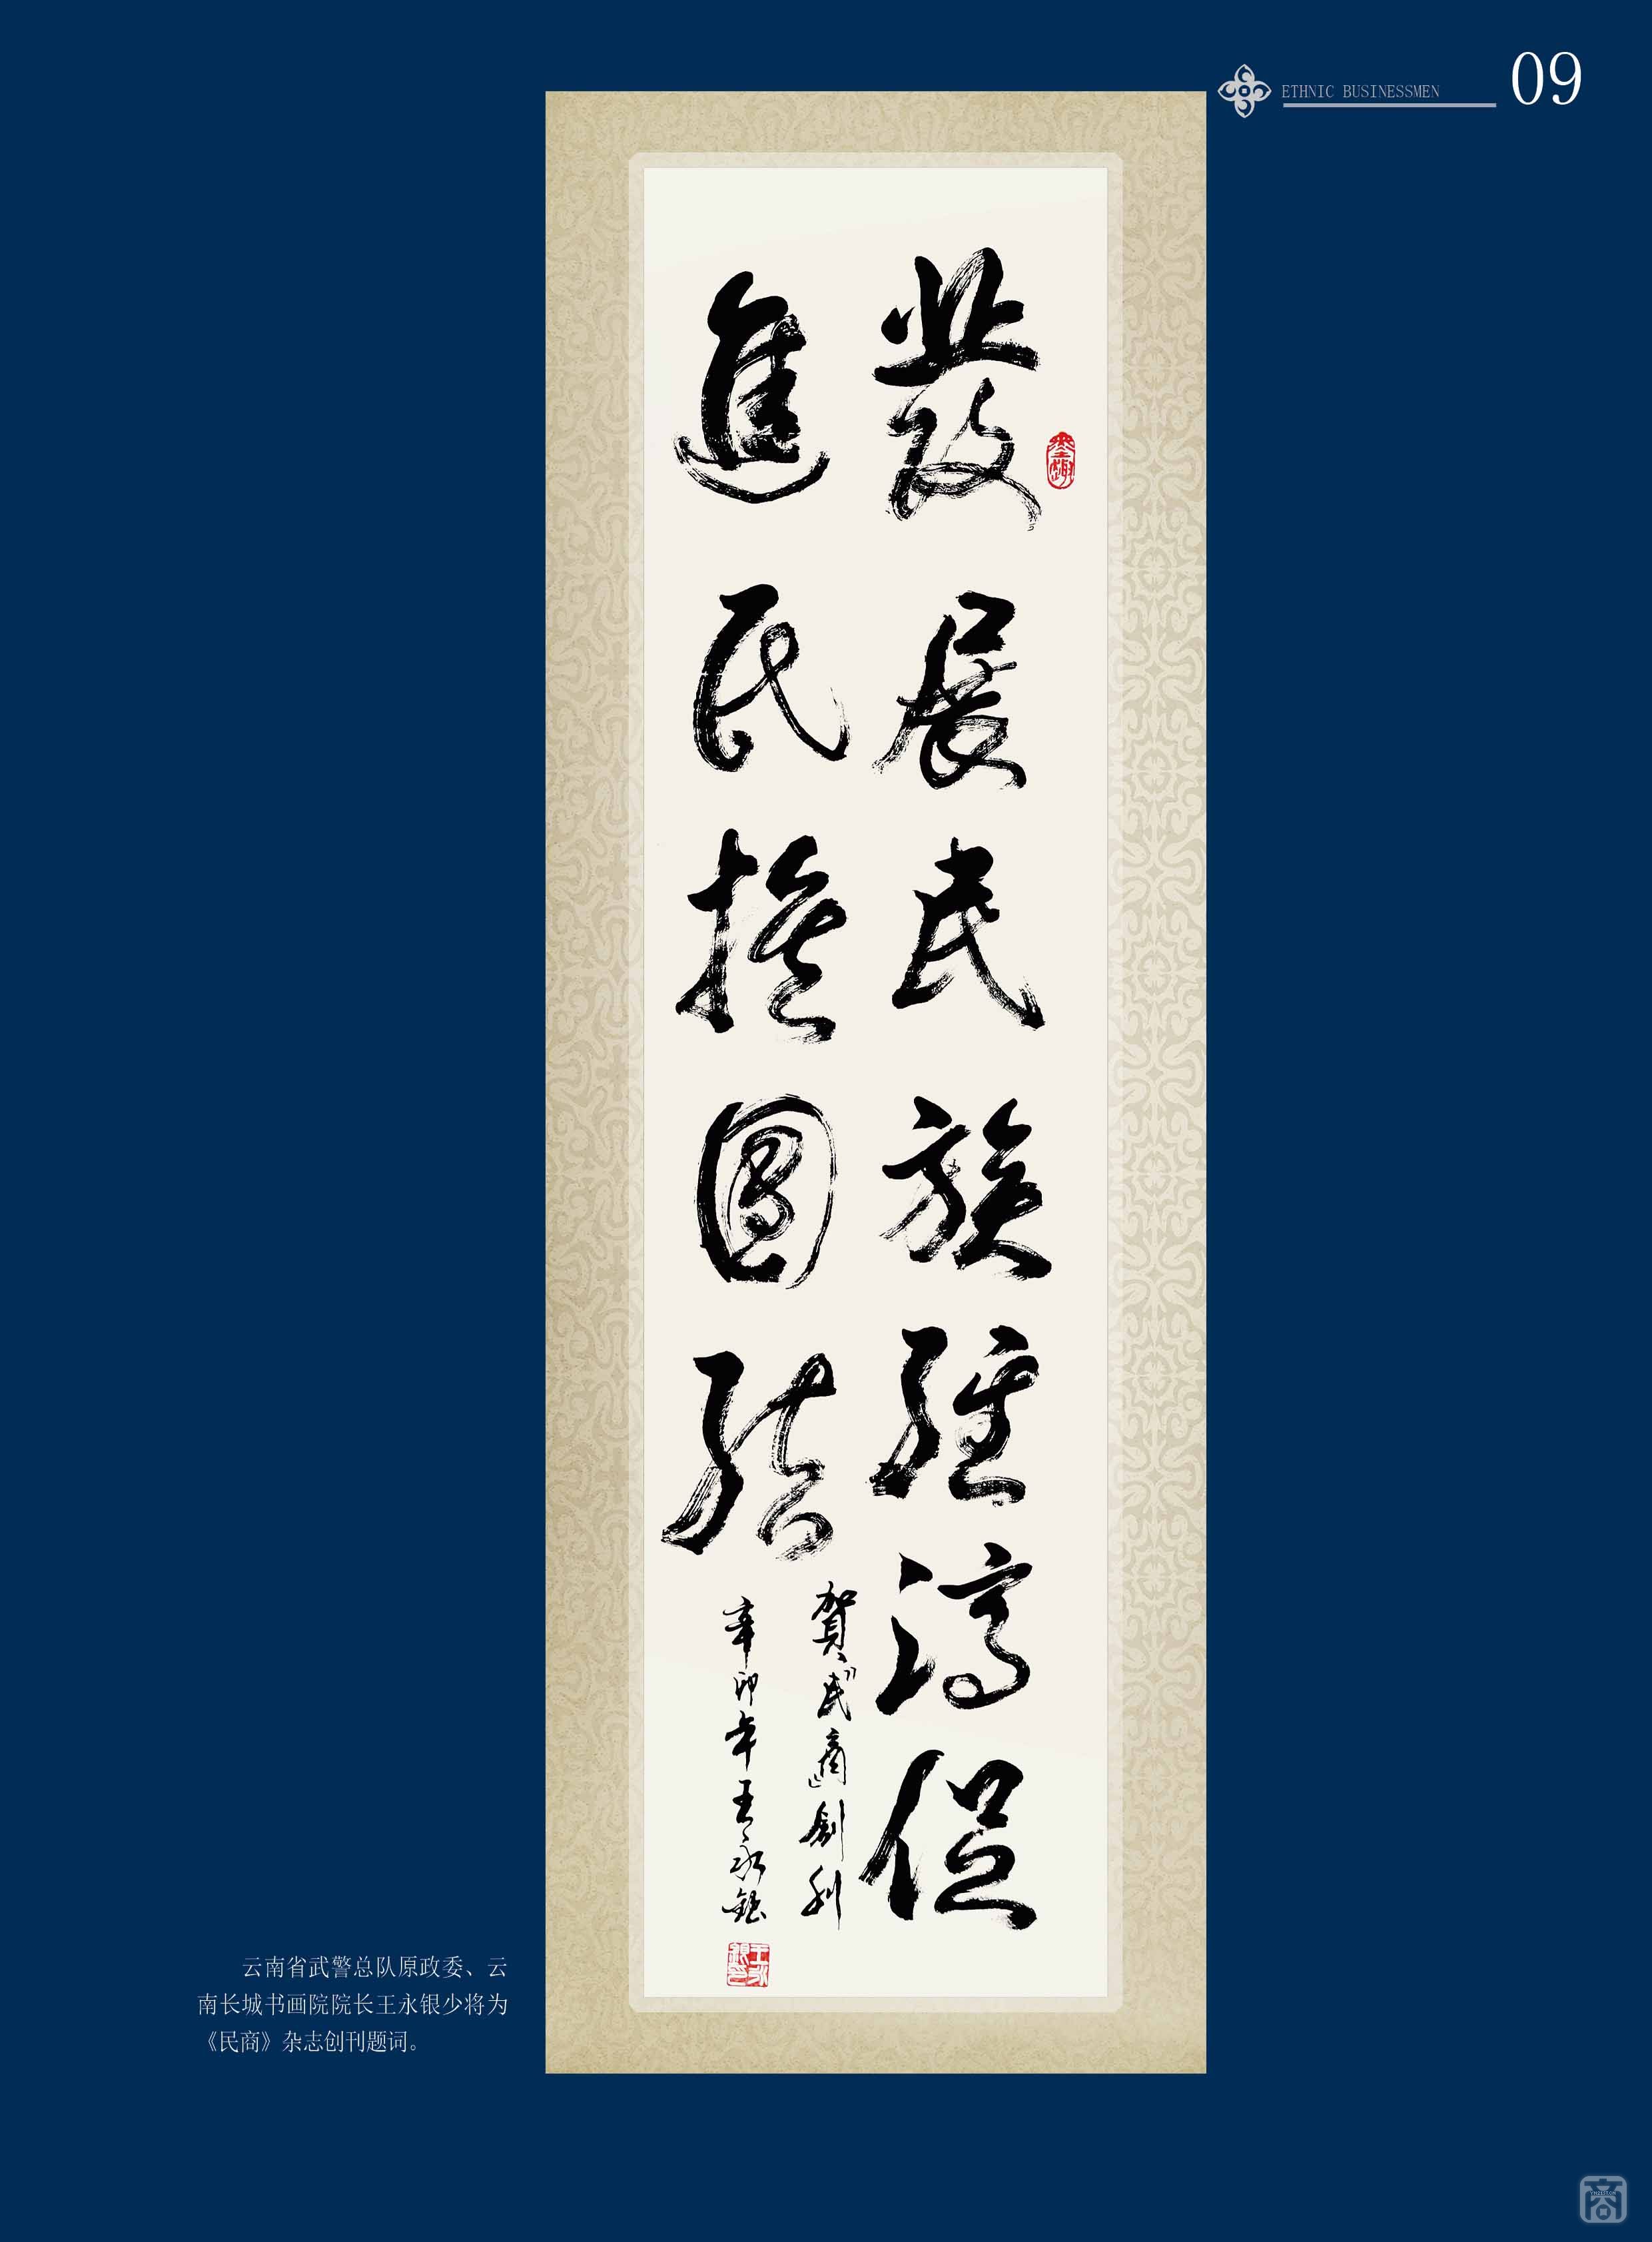 ETHNIC BUSINESSMEN
09
發展民族經濟促
進民族團結
賀《民商》創刊
辛卯年王永銀
墨趣
王永銀印
云南省武警总队原政委、云
南长城书画院院长王永银少将为
《民商》杂志创刊题词。
商